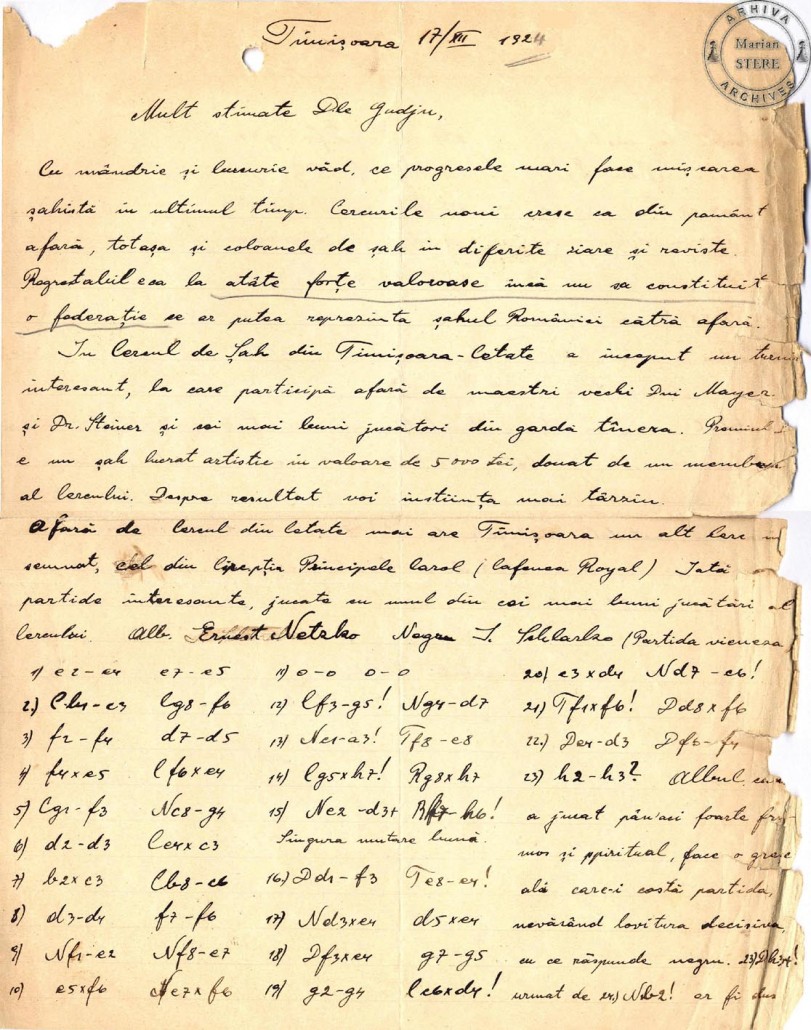 Timișoara 17/XII 1924
ARHIVA
Marian
STERE
ARCHIVES
Mult stimate Dle Gudju,
Cu mândrie și bucurie văd, ce progresele mari face mișcarea
șahistă in ultimul timp. Cercurile noui cresc ca din pamânt
afară, totașa și coloanele de șah in diferite ziare și reviste.
Regretabil eca la atâte forțe valoroase incă nu sa constituit
o federație ce ar putea reprezinta șahul României cătră afară.
In Cercul de Șah din Timișoara-Cetate a inceput un
interesant, la care participă afară de maestri vechi Dnii Mayer
și Dr. Steiner și cei mai buni jucători din garda tînera. Premiul
e un șah lucrat artistic in valoare de 5000 Lei, donat de un membru
al Cercului. Despre resultat voi inștiința mai târziu.
Afară de Cercul din Cetate mai are Timișoara un alt Cerc in
semnat, cel din Principele Carol (Cafenea Royal) Iată
partide interesante, jucate cu unul din cei mai buni jucătări al
Cercului. Alb. Ernest Netzko Negru I. (Partida vieneza
1) e2-e4 e7-e5
2) Cb1-c3 Cg8-f6
3) f2-f4 d7-d5
4) f4xe5 Cf6xe4
5) Cg1-f3 Nc8-g4
6) d2-d3 Ce4xc3
7) b2xc3 Cb8-c6
8) d3-d4 f7-f6
9) Nf1-e2 Nf8-e7
10) e5xf6 Ne7xf6
11) 0-0 0-0
12) Cf3-g5! Ng4-d7
13) Nc1-a3! Tf8-e8
14) Cg5xh7! Rg8xh7
15) Ne2-d3+ h6!
Singura mutare bună.
16) Dd1-f3 Te8-e4!
17) Nd3xe4 d5xe4
18) Df3xe4 g7-g5
19) g2-g4 Cc6xd4!
20) c3xd4 Nd7-c6!
21) Tf1xf6! Dd8xf6
22) De4-d3 Df6-f4
23) h2-h3? Albul, care
a jucat pân'aci foarte fru-
mos și spiritual, face o greșe
ală care-i costă partida,
nevăzând lovitura decisiva,
cu ce răspunde negru. 23)
urmat de 24) ar fi dus